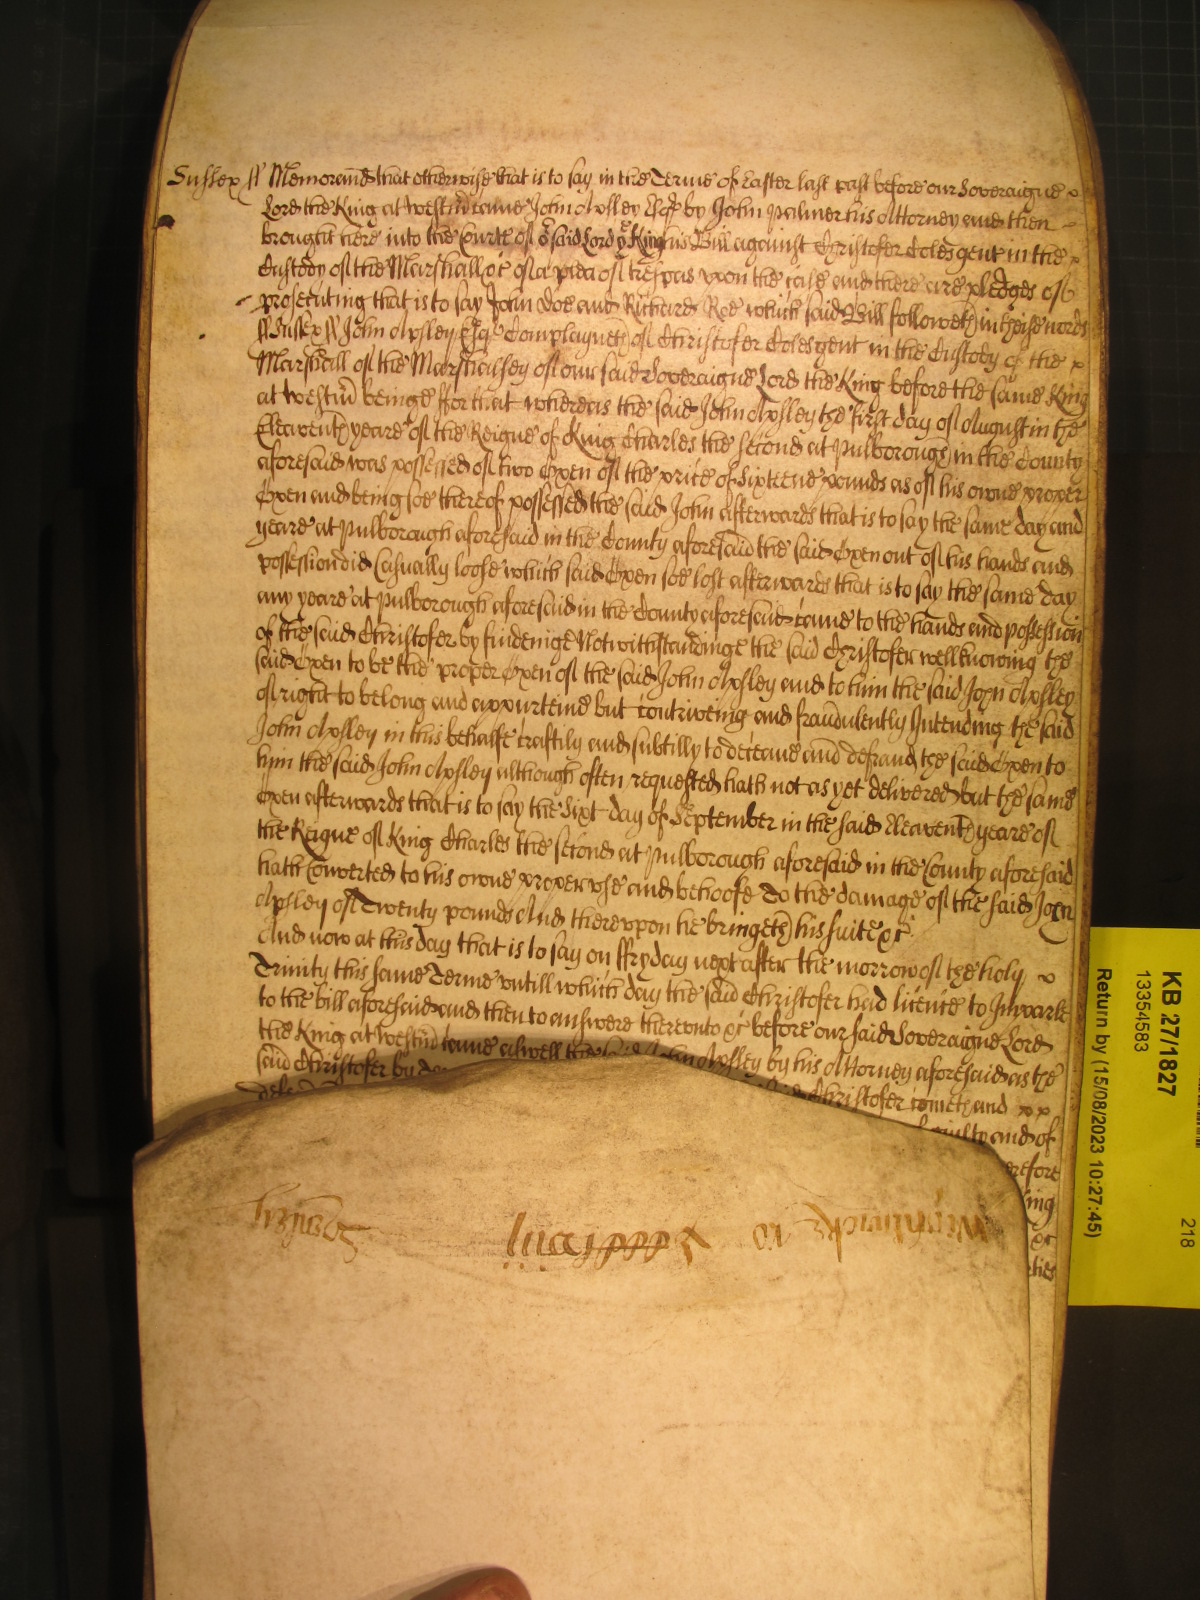 Sussex ss Memorand that otherwise that is to say in the Terme of Easter last past before our Soveraigne
Lord the King at Westm came John Apsley Esqr by John Palmer his Attorney and then
brought here into the Court of o said Lord ye King his Bill against Christofer Coles gent in the
Custody of the Marshall &c of a plea of trespas upon the case and there are pledges of
prosecuting that is to say John Doe and Richard Roe which said Bill followeth in theise words
ss Sussex ss John Apsley Esqr Complayneth of Christofer Coles gent in the Custody of the
Marshall of the Marshalsey of our said Soveraigne Lord the King before the same King
at Westm beinge ffor that whereas the said John Apsley the first day of August in the
Eleaventh yeare of the Reigne of King Charles the second at Pulborough in the County
aforesaid was possessed of two Oxen of the price of Sixteene pounds as of his owne proper
Oxen and being soe thereof possessed the said John afterwards that is to say the same day and
yeare at Pulborough aforesaid in the County aforesaid the said Oxen out of his hands and
possession did casually loose which said Oxen soe lost afterwards that is to say the same day
any yeare at Pulborough aforesaid in the County aforesaid came to the hands and possession
of the said Christofer by findeinge Notwithstandinge the said Christofer well knowing the
said Oxen to be the proper Oxen of the said John Apsley and to him the said John Apsley
of right to belong and appurteine but contriveing and fraudulently Intending the said
John Apsley in this behalfe craftily and subtilly to deceave and defraud the said Oxen to
him the said John Apsley although often requested hath not as yet delivered but the same
Oxen afterwards that is to say the Sixt day of September in the said Eleaventh yeare of
the Reigne of King Charles the second at Pulborough aforesaid in the County aforesaid
hath Converted to his owne proper use and behoofe To the damage of the said John
Apsley of Twenty pounds And thereupon he bringeth his suite &c
And now at this day that is to say on ffryday next after the morrow of the holy
Trinity this same Terme untill which day the said Christofer had licence to Imparle
to the bill aforesaid and then to answere thereunto &c before our said Soveraigne Lord
the King at Westm came aswell the said John Apsley by his Attorney aforesaid as the
said Christofer by
Christofer cometh and
guilty and of
erefore
ing
&c
ties
KB 27/1827
13354583
Return by (15/08/2023 10:27:45)
218